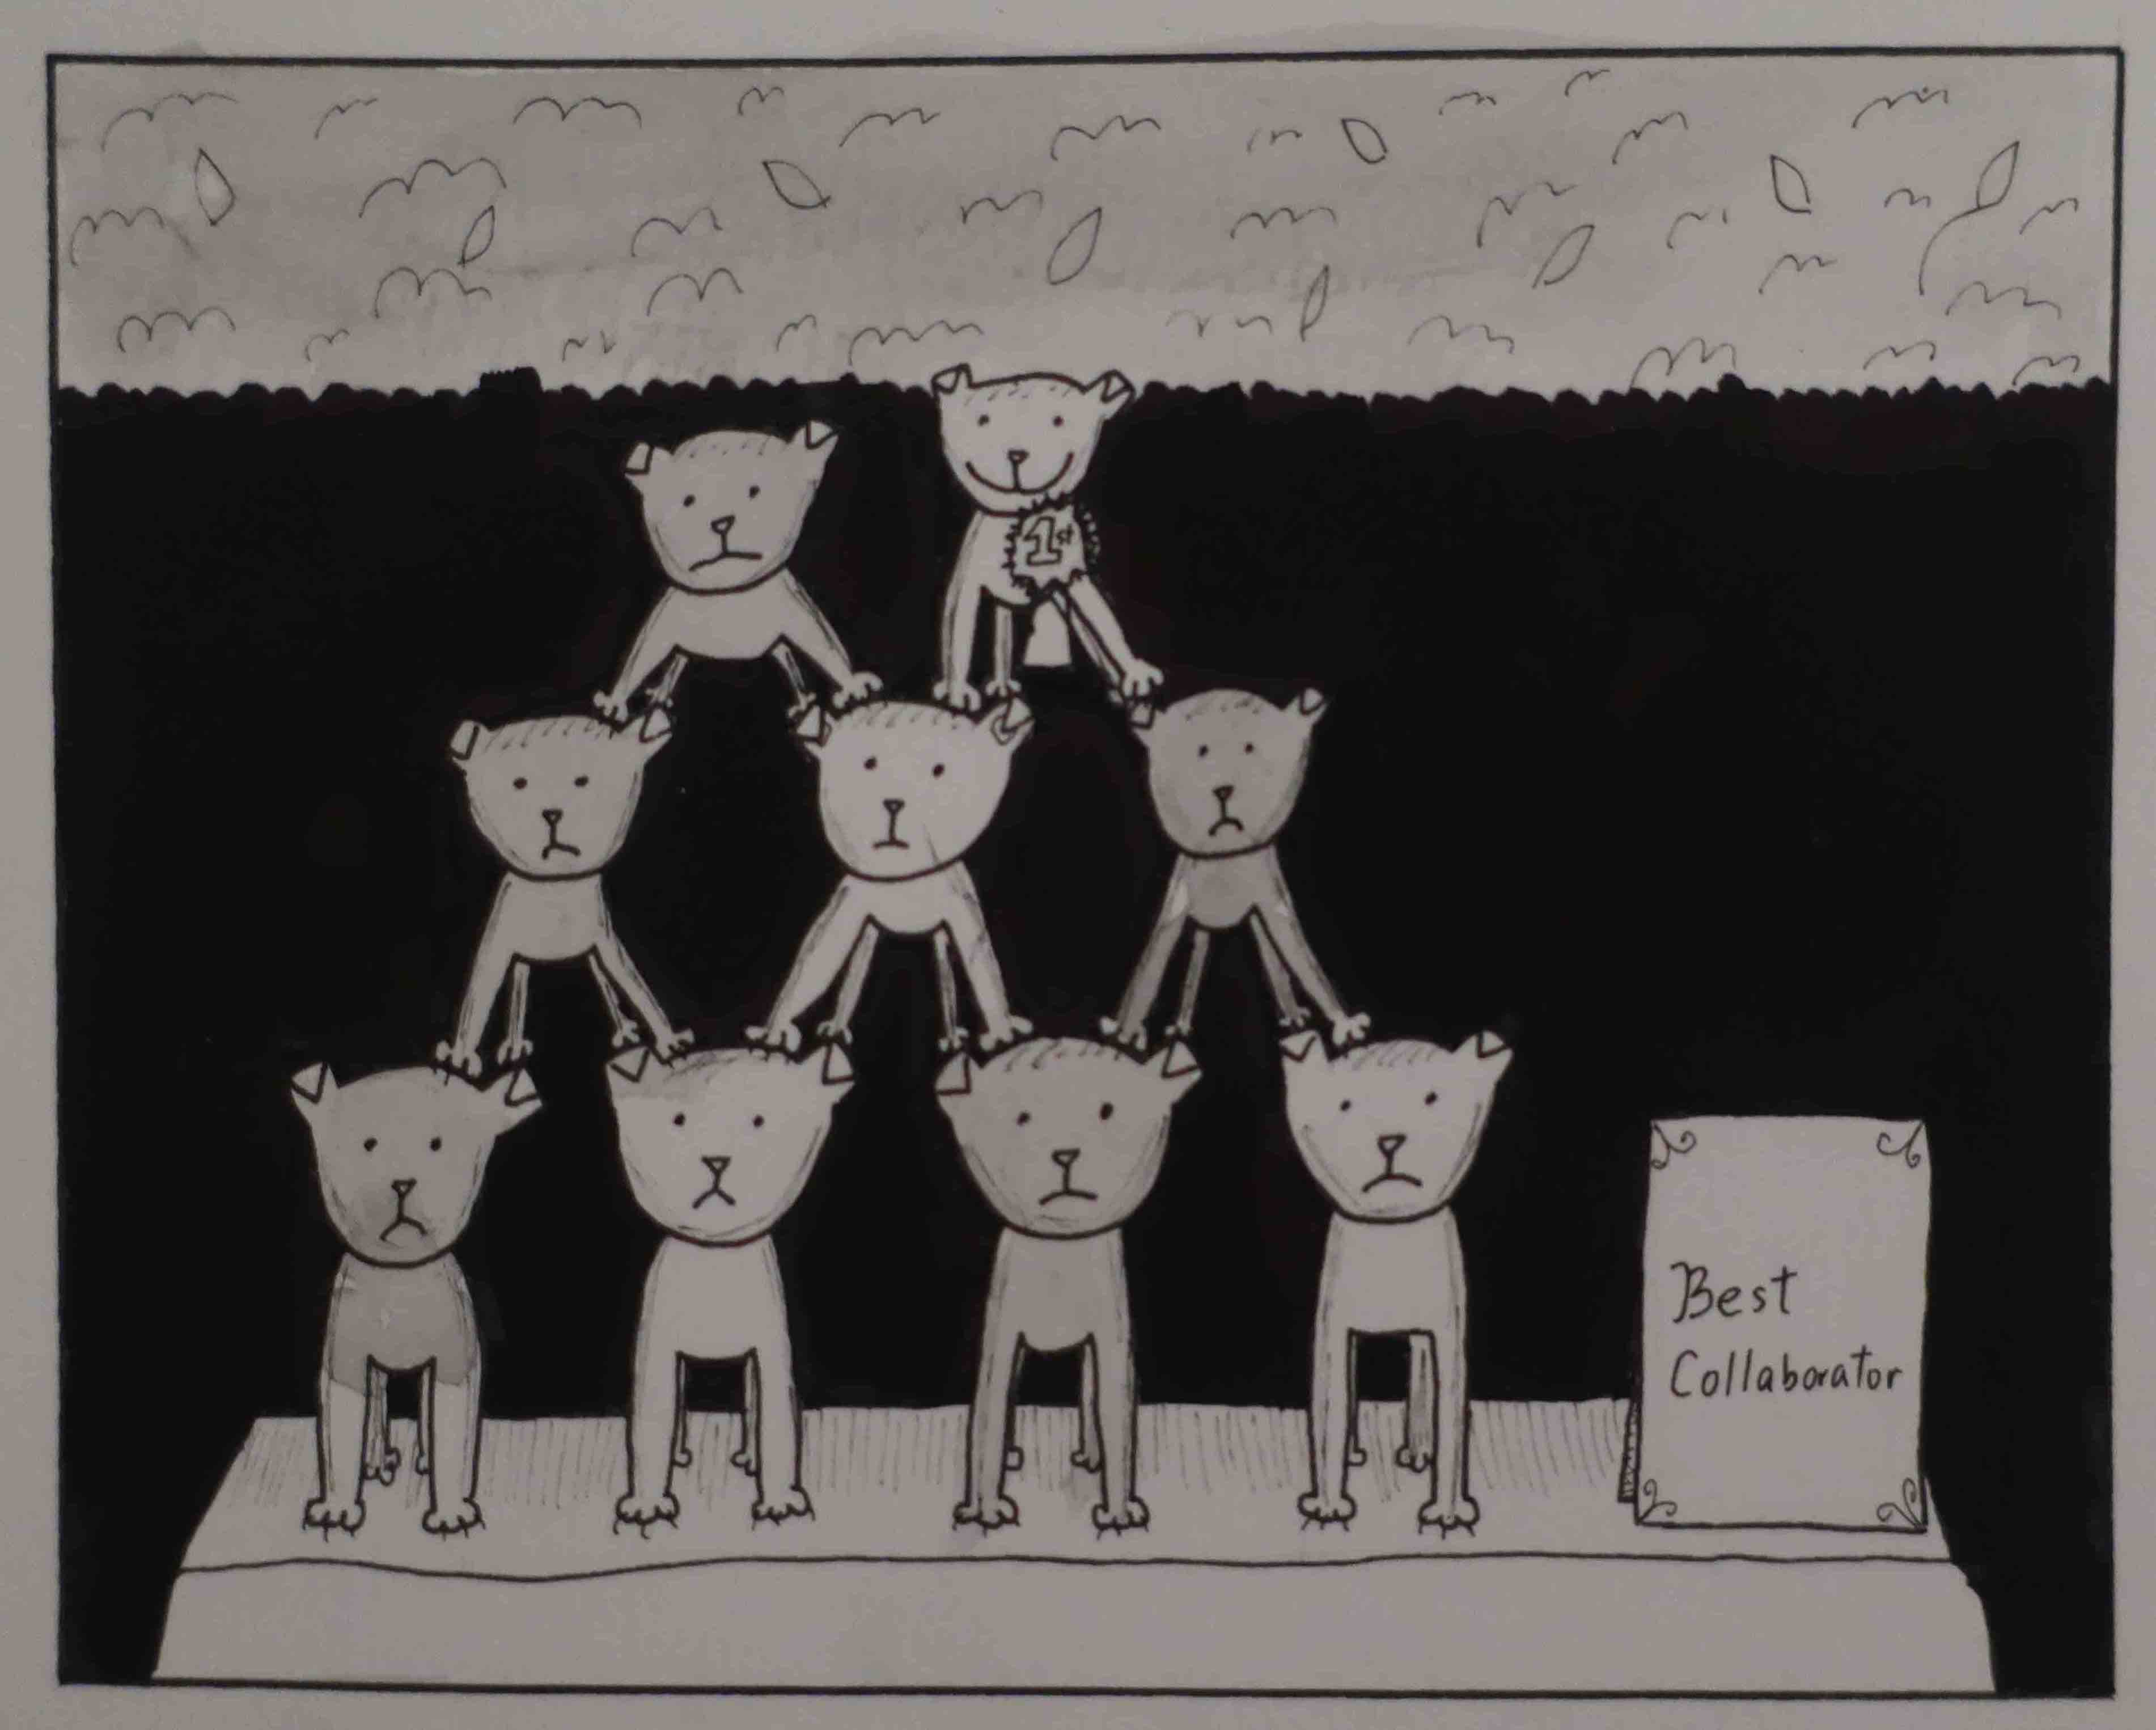 1st
Best
Collaborator